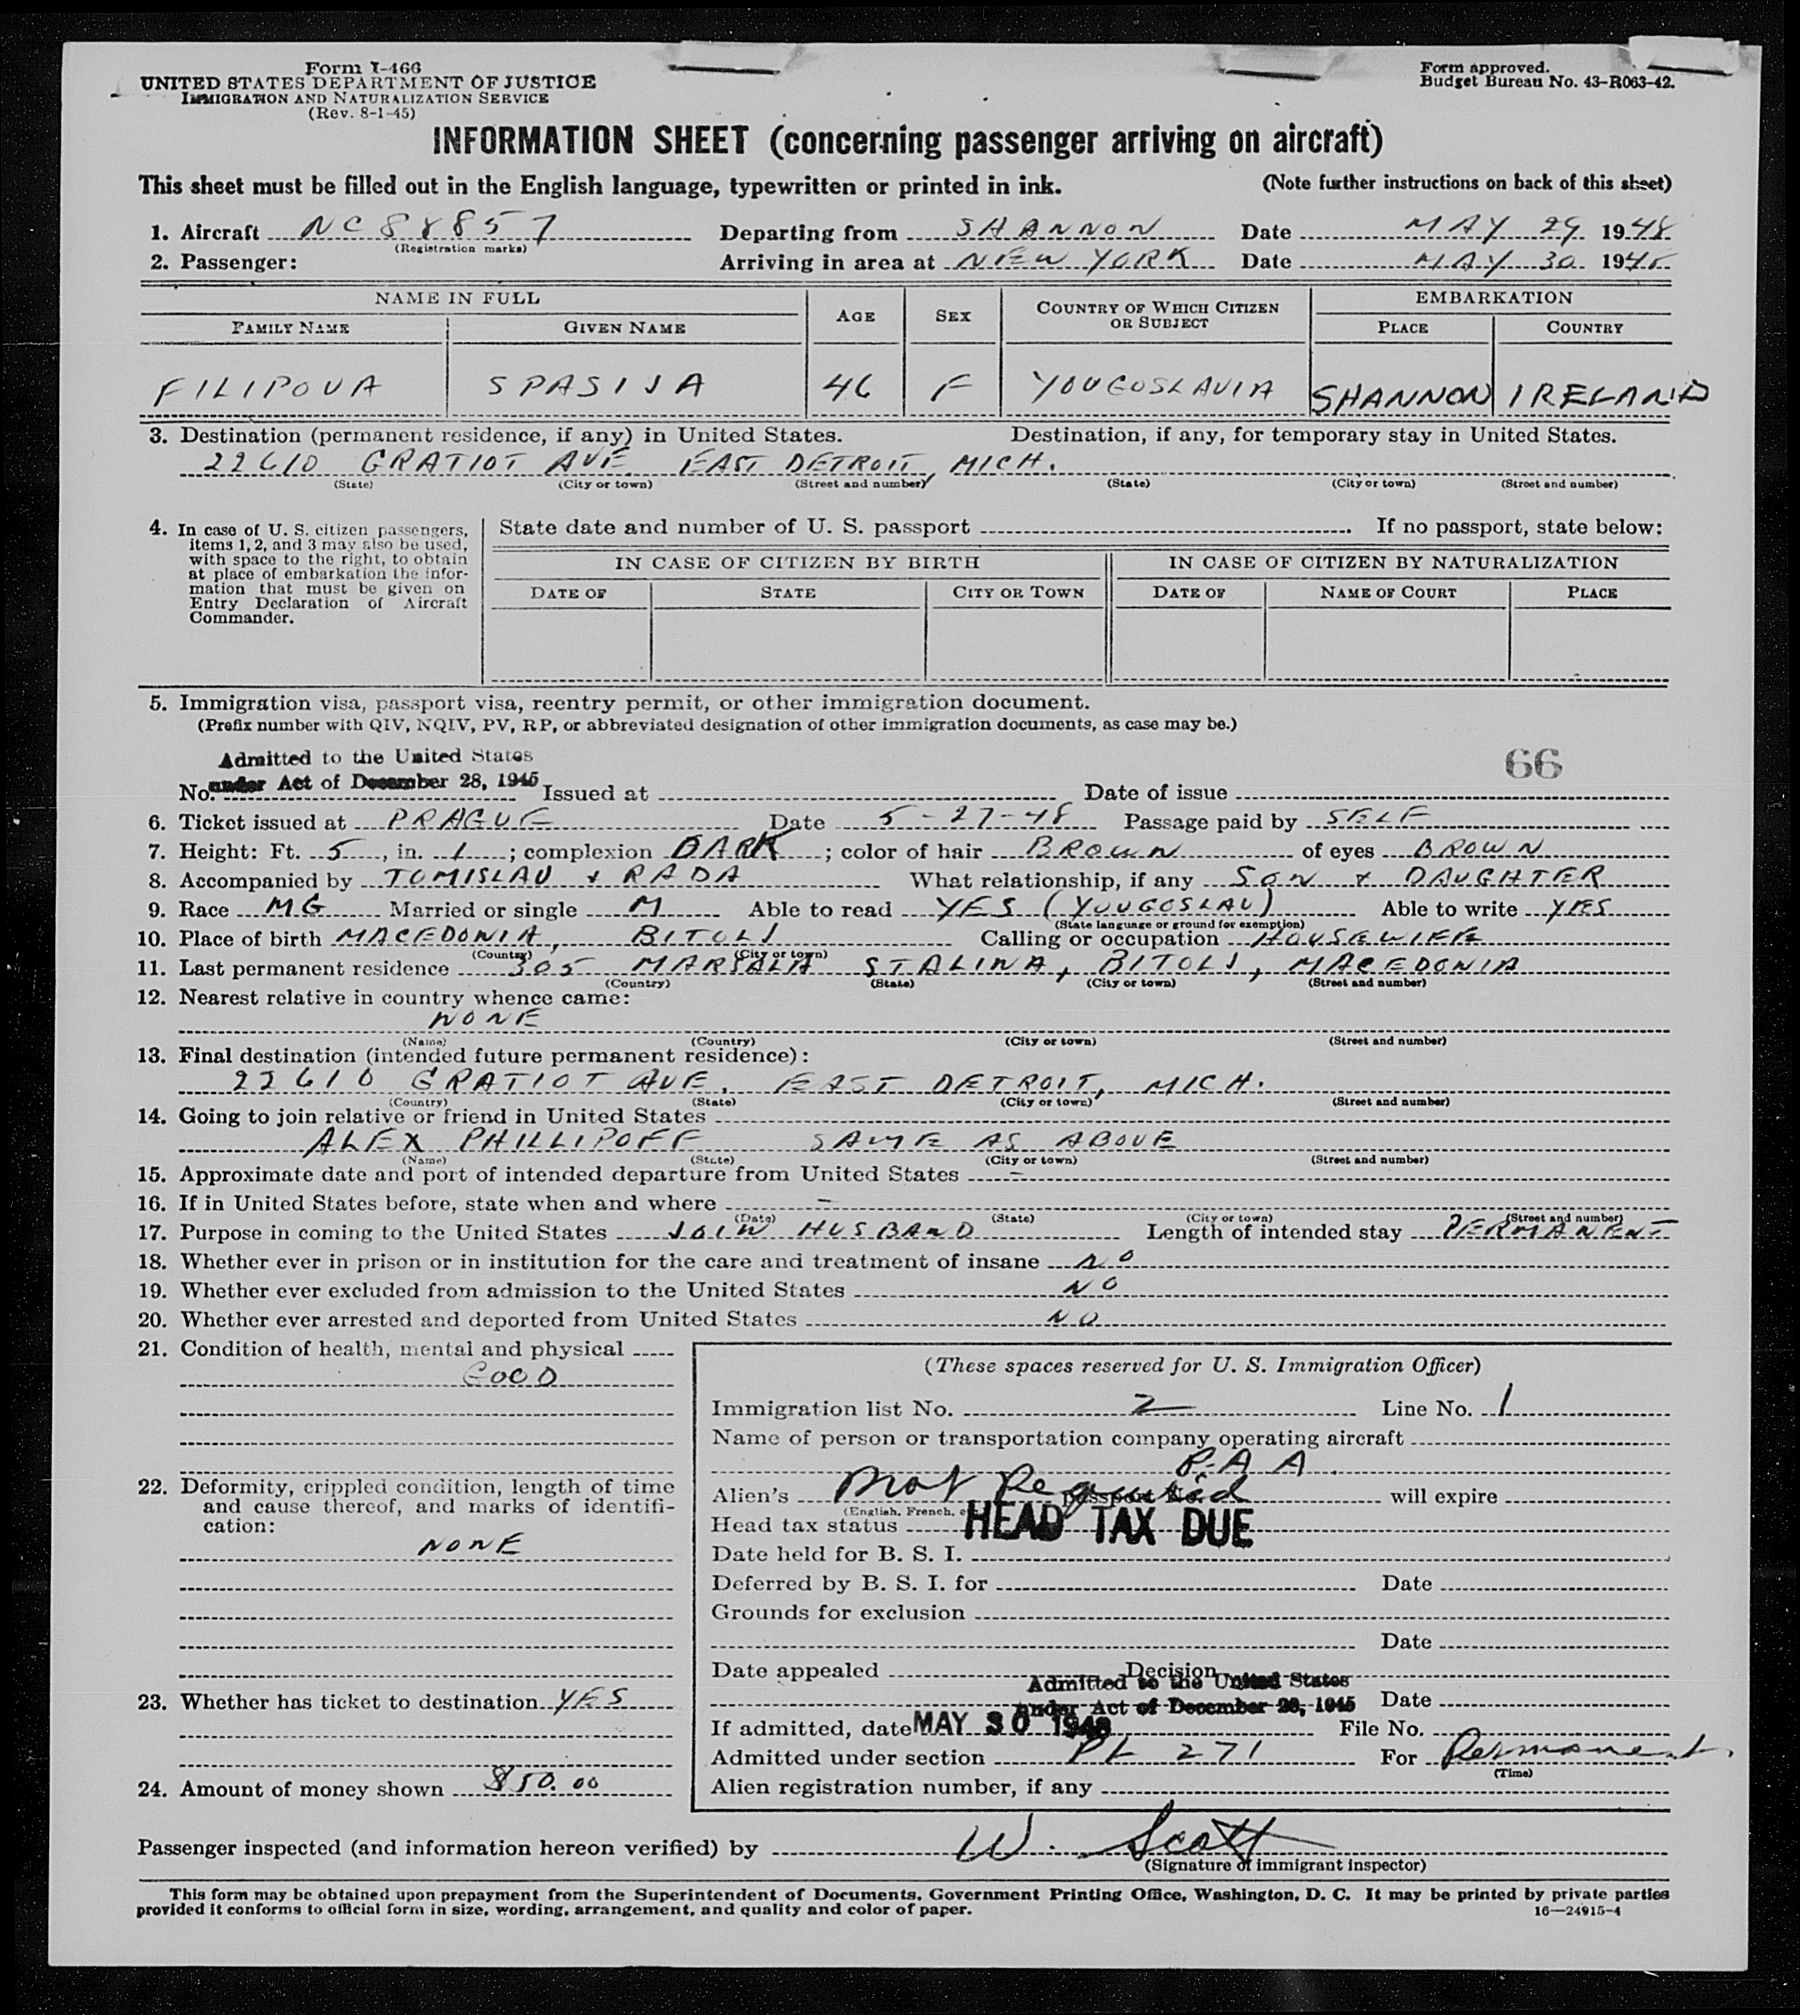 Form I-466
UNITED STATES DEPARTMENT OF JUSTICE
IMMIGRATION AND NATURALIZATION SERVICE
(Rev. 8-1-45)
Form approved.
Budget Bureau No. 43-R063-42.
INFORMATION SHEET (concerning passenger arriving on aircraft)
This sheet must be filled out in the English language, typewritten or printed in ink. (Note further instructions on back of this sheet)
1. Aircraft NC88857 Departing from SHANNON Date MAY 29 1948
(Registration marks)
2. Passenger: Arriving in area at NEW YORK Date MAY 30 1948
NAME IN FULL AGE SEX COUNTRY OF WHICH CITIZEN OR SUBJECT EMBARKATION
FAMILY NAME GIVEN NAME PLACE COUNTRY
FILIPOVA SPASIJA 46 F YOUGOSLAVIA SHANNON IRELAND
3. Destination (permanent residence, if any) in United States. Destination, if any, for temporary stay in United States.
22610 GRATIOT AVE EAST DETROIT, MICH.
(State) (City or town) (Street and number) (State) (City or town) (Street and number)
4. In case of U. S. citizen passengers,
items 1, 2, and 3 may also be used,
with space to the right, to obtain
at place of embarkation the infor-
mation that must be given on
Entry Declaration of Aircraft
Commander.
State date and number of U. S. passport . If no passport, state below:
IN CASE OF CITIZEN BY BIRTH IN CASE OF CITIZEN BY NATURALIZATION
DATE OF STATE CITY OR TOWN DATE OF NAME OF COURT PLACE
5. Immigration visa, passport visa, reentry permit, or other immigration document.
(Prefix number with QIV, NQIV, PV, RP, or abbreviated designation of other immigration documents, as case may be.)
Admitted to the United States 66
No. under Act of December 28, 1945 Issued at Date of issue
6. Ticket issued at PRAGUE Date 5-27-48 Passage paid by SELF
7. Height: Ft. 5, in. 1; complexion DARK; color of hair BROWN of eyes BROWN
8. Accompanied by TOMISLAV & RADA What relationship, if any SON & DAUGHTER
9. Race MG Married or single M Able to read YES (YOUGOSLAV) Able to write YES
(State language or ground for exemption)
10. Place of birth MACEDONIA, BITOLJ Calling or occupation HOUSEWIFE
(Country) (City or town)
11. Last permanent residence 305 MARSALA STALINA, BITOLJ, MACEDONIA
(Country) (State) (City or town) (Street and number)
12. Nearest relative in country whence came:
NONE
(Name) (Country) (City or town) (Street and number)
13. Final destination (intended future permanent residence):
22610 GRATIOT AVE. EAST DETROIT, MICH.
(Country) (State) (City or town) (Street and number)
14. Going to join relative or friend in United States
ALEX PHILLIPOFF SAME AS ABOVE
(Name) (State) (City or town) (Street and number)
15. Approximate date and port of intended departure from United States -
16. If in United States before, state when and where -
(Date) (State) (City or town) (Street and number)
17. Purpose in coming to the United States JOIN HUSBAND Length of intended stay PERMANENT
18. Whether ever in prison or in institution for the care and treatment of insane NO
19. Whether ever excluded from admission to the United States NO
20. Whether ever arrested and deported from United States NO
21. Condition of health, mental and physical
GOOD
22. Deformity, crippled condition, length of time
and cause thereof, and marks of identifi-
cation:
NONE
23. Whether has ticket to destination YES
24. Amount of money shown $50.00
(These spaces reserved for U. S. Immigration Officer)
Immigration list No. 2 Line No. 1
Name of person or transportation company operating aircraft
P.A A.
Alien's Not Required passport No. will expire
(English, French,
Head tax status HEAD TAX DUE
Date held for B. S. I.
Deferred by B. S. I. for Date
Grounds for exclusion
Date
Date appealed Decision
Admitted to the United States
under Act of December 28, 1945 Date
If admitted, date MAY 30 1948 File No.
Admitted under section PL 271 For Permanent.
(Time)
Alien registration number, if any
Passenger inspected (and information hereon verified) by W. Scott
(Signature of immigrant inspector)
This form may be obtained upon prepayment from the Superintendent of Documents, Government Printing Office, Washington, D. C. It may be printed by private parties
provided it conforms to official form in size, wording, arrangement, and quality and color of paper. 16—24915-4